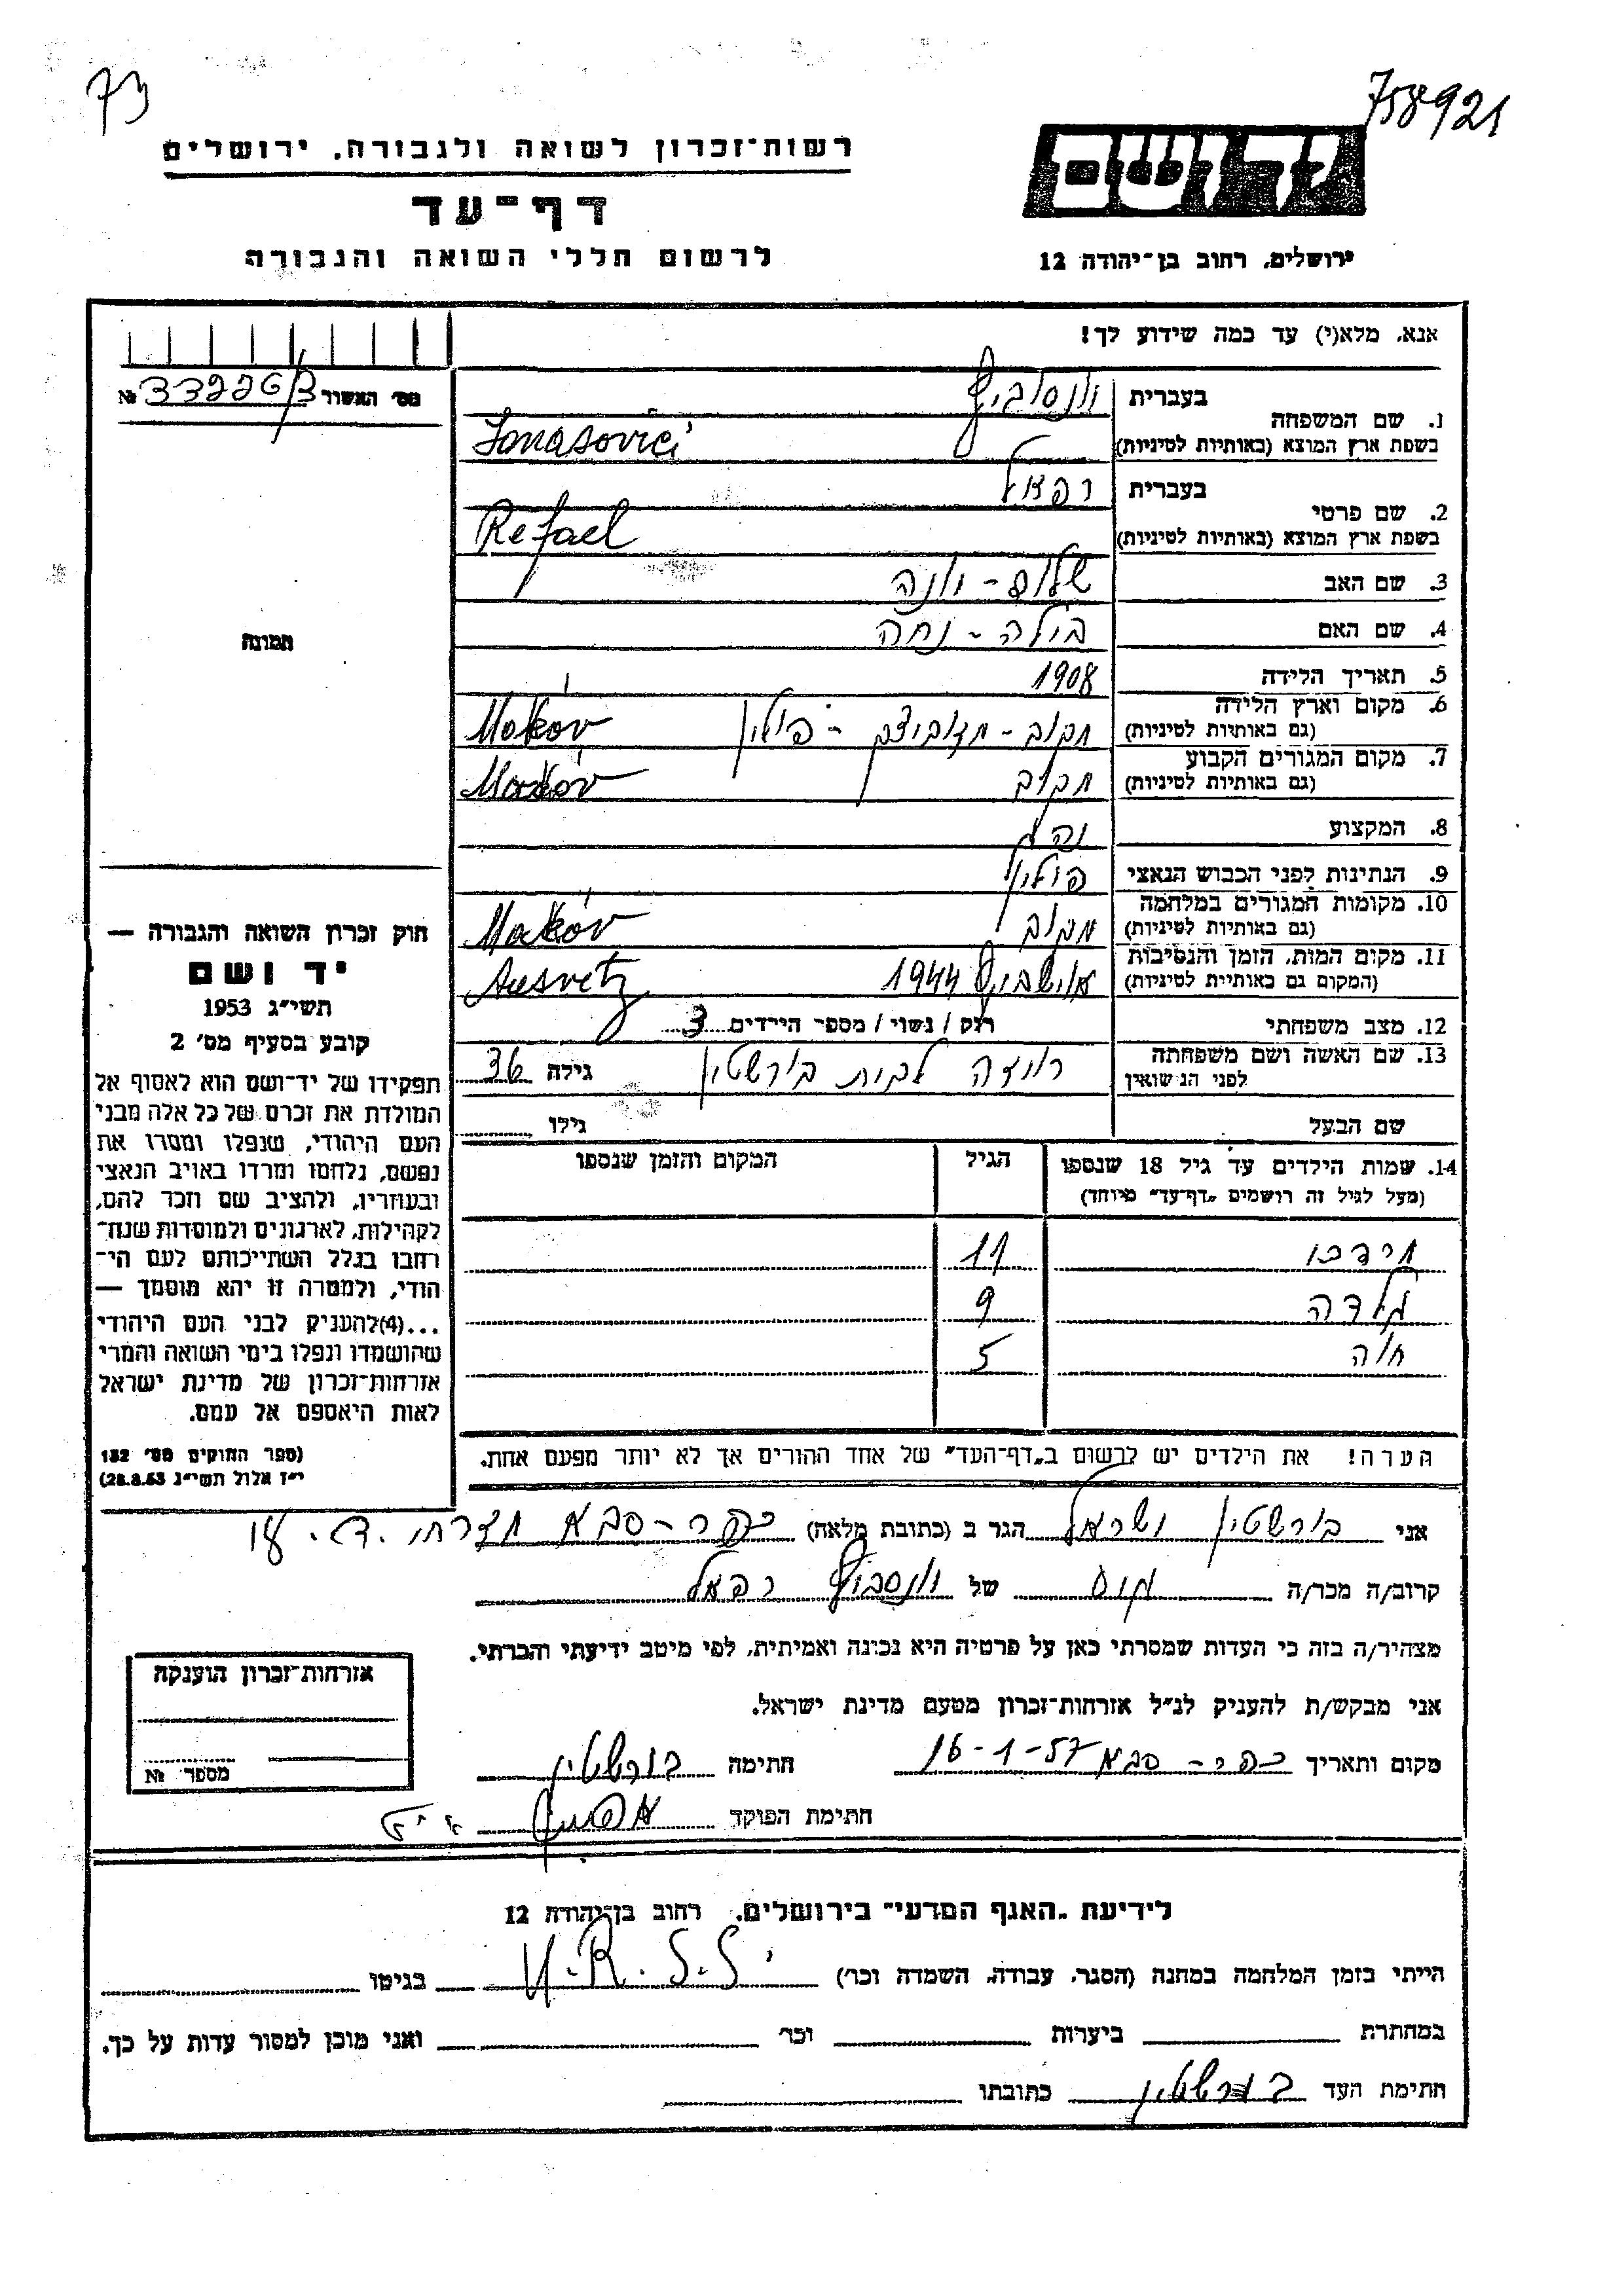 758921
73
יד ושם
ירושלים, רחוב בן־יהודה 12
רשות־זכרון לשואה ולגבורה, ירושלים
דף־עד
לרשום חללי השואה והגבורה
אנא, מלא(י) עד כמה שידוע לך!
מס׳ האשור № 33226/3
1. שם המשפחה
בעברית
בשפת ארץ המוצא (באותיות לטיניות) Ionasovici
2. שם פרטי
בעברית רפאל
בשפת ארץ המוצא (באותיות לטיניות) Refael
3. שם האב שלום - יונה
4. שם האם בילה -
5. תאריך הלידה 1908
6. מקום וארץ הלידה
(גם באותיות לטיניות) מקוב - מזוביצק - פולין Makóv
7. מקום המגורים הקבוע
(גם באותיות לטיניות) מקוב Makóv
8. המקצוע נהג
9. הנתינות לפני הכבוש הנאצי פולין
10. מקומות המגורים במלחמה
(גם באותיות לטיניות) מקוב Makóv
11. מקום המות, הזמן והנסיבות
(המקום גם באותיית לטיניות) אושביץ 1944 Ausvetz
12. מצב משפחתי רוק / נשוי / מספר הילדים 3
13. שם האשה ושם משפחתה
לפני הנשואין לבית בורשטין גילה 36
שם הבעל גילו
14. שמות הילדים עד גיל 18 שנספו
(מעל לגיל זה רושמים „דף־עד״ מיוחד)
הגיל
המקום והזמן שנספו
מרדכי 11
גולדה 9
חוה 5
הערה! את הילדים יש לרשום ב„דף־העד״ של אחד ההורים אך לא יותר מפעם אחת.
תמונה
חוק זכרון השואה והגבורה —
יד ושם
תשי״ג 1953
קובע בסעיף מס׳ 2
תפקידו של יד־ושם הוא לאסוף אל
המולדת את זכרם של כל אלה מבני
העם היהודי, שנפלו ומסרו את
נפשם, נלחמו ומרדו באויב הנאצי
ובעוזריו, ולהציב שם וזכר להם,
לקהילות, לארגונים ולמוסדות שנח־
רחבו בגלל השתייכותם לעם הי־
הודי, ולמטרה זו יהא מוסמך —
...(4)להעניק לבני העם היהודי
שהושמדו ונפלו בימי השואה והמרי
אזרחות־זכרון של מדינת ישראל
לאות היאספם אל עמם.
(ספר החוקים מס׳ 132
י״ז אלול תשי״ג 28.8.53)
אני בורשטין ישראל הגר ב (כתובת מלאה) כפר - סבא מזרחי
קרוב/ה מכר/ה גיס של יונסוביץ רפאל
מצהיר/ה בזה כי העדות שמסרתי כאן על פרטיה היא נכונה ואמיתית, לפי מיטב ידיעתי והכרתי.
אני מבקש/ת להעניק לנ״ל אזרחות־זכרון מטעם מדינת ישראל.
מקום ותאריך כפר - סבא 16-1-57 חתימה בורשטין
חתימת הפוקד
אזרחות־זכרון הוענקה
מספר №
לידיעת „האגף המדעי״ בירושלים, רחוב בן־יהודה 12
הייתי בזמן המלחמה במחנה (הסגר, עבודה, השמדה וכר׳) U.R.S.S בגיטו
במחתרת ביערות וכר׳ ואני מוכן למסור עדות על כך.
חתימת העד בורשטין כתובתו